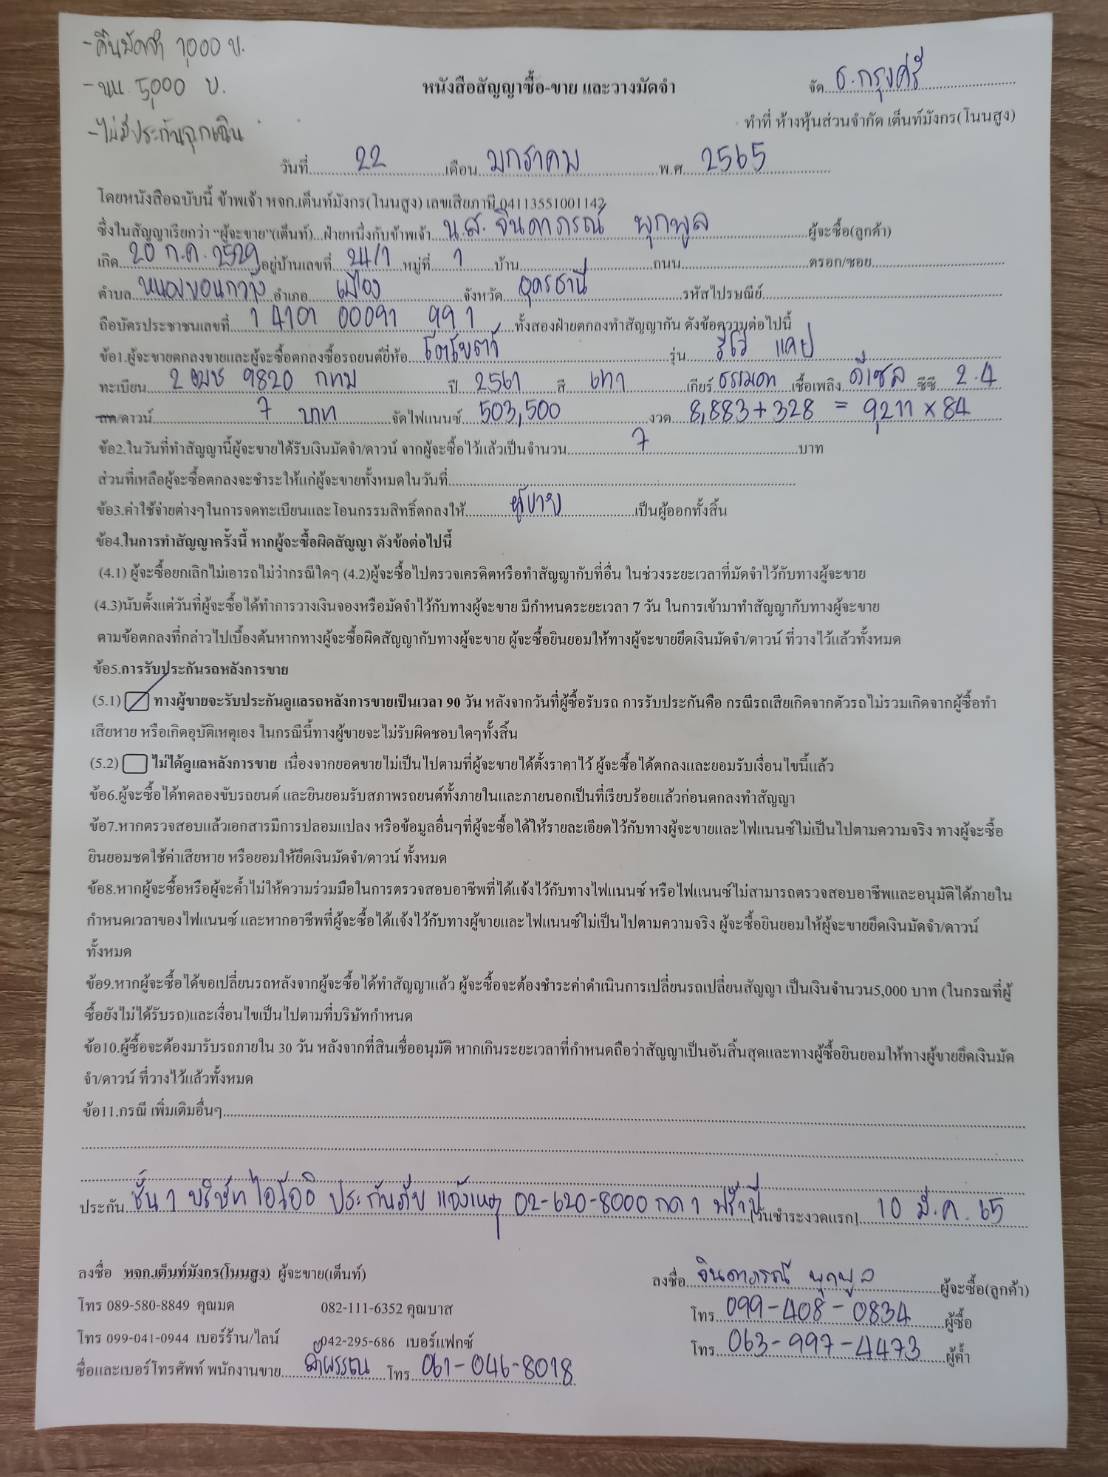 -คืนมัดจำ 1000 บ.
-แนะ 5,000 บ.
-ไม่มีประกันฉุกเฉิน
หนังสือสัญญาซื้อ-ขาย และวางมัดจำ
จัด ธ.กรุงศรี
ทำที่ ห้างหุ้นส่วนจำกัด เต็นท์มังกร(โนนสูง)
วันที่ 22 เดือน มกราคม พ.ศ. 2565
โดยหนังสือฉบับนี้ ข้าพเจ้า หจก.เต็นท์มังกร(โนนสูง) เลขเสียภาษี 04113551001142
ซึ่งในสัญญาเรียกว่า "ผู้จะขาย"(เต็นท์)...ฝ่ายหนึ่งกับข้าพเจ้า น.ส. จินดาภรณ์ พุกพูล ผู้จะซื้อ(ลูกค้า)
เกิด 20 ก.ค. 2529 อยู่บ้านเลขที่ 24/1 หมู่ที่ 1 บ้าน ถนน ตรอก/ซอย
ตำบล หนองขอนกว้าง อำเภอ เมือง จังหวัด อุดรธานี รหัสไปรษณีย์
ถือบัตรประชาชนเลขที่ 1 4101 00091 99 1 ทั้งสองฝ่ายตกลงทำสัญญากัน ดังข้อความต่อไปนี้
ข้อ1.ผู้จะขายตกลงขายและผู้จะซื้อตกลงซื้อรถยนต์ยี่ห้อ โตโยต้า รุ่น รีโว่ แคป
ทะเบียน 2 ฒช 9820 กทม ปี 2561 สี เทา เกียร์ ธรรมดา เชื้อเพลิง ดีเซล ซีซี 2.4
สด/ดาวน์ 7 บาท จัดไฟแนนซ์ 503,500 งวด 8,883+328 = 9,211 x 84
ข้อ2.ในวันที่ทำสัญญานี้ผู้จะขายได้รับเงินมัดจำ/ดาวน์ จากผู้จะซื้อไว้แล้วเป็นจำนวน 7 บาท
ส่วนที่เหลือผู้จะซื้อตกลงจะชำระให้แก่ผู้จะขายทั้งหมดในวันที่
ข้อ3.ค่าใช้จ่ายต่างๆในการจดทะเบียนและโอนกรรมสิทธิ์ตกลงให้ ผู้ขาย เป็นผู้ออกทั้งสิ้น
ข้อ4.ในการทำสัญญาครั้งนี้ หากผู้จะซื้อผิดสัญญา ดังข้อต่อไปนี้
(4.1) ผู้จะซื้อยกเลิกไม่เอารถไม่ว่ากรณีใดๆ (4.2)ผู้จะซื้อไปตรวจเครดิตหรือทำสัญญากับที่อื่น ในช่วงระยะเวลาที่มัดจำไว้กับทางผู้จะขาย
(4.3)นับตั้งแต่วันที่ผู้จะซื้อได้ทำการวางเงินจองหรือมัดจำไว้กับทางผู้จะขาย มีกำหนดระยะเวลา 7 วัน ในการเข้ามาทำสัญญากับทางผู้จะขาย
ตามข้อตกลงที่กล่าวไปเบื้องต้นหากทางผู้จะซื้อผิดสัญญากับทางผู้จะขาย ผู้จะซื้อยินยอมให้ทางผู้จะขายยึดเงินมัดจำ/ดาวน์ ที่วางไว้แล้วทั้งหมด
ข้อ5.การรับประกันรถหลังการขาย
(5.1) ทางผู้ขายจะรับประกันดูแลรถหลังการขายเป็นเวลา 90 วัน หลังจากวันที่ผู้ซื้อรับรถ การรับประกันคือ กรณีรถเสียเกิดจากตัวรถไม่รวมเกิดจากผู้ซื้อทำ
เสียหาย หรือเกิดอุบัติเหตุเอง ในกรณีนี้ทางผู้ขายจะไม่รับผิดชอบใดๆทั้งสิ้น
(5.2) ไม่ได้ดูแลหลังการขาย เนื่องจากยอดขายไม่เป็นไปตามที่ผู้จะขายได้ตั้งราคาไว้ ผู้จะซื้อได้ตกลงและยอมรับเงื่อนไขนี้แล้ว
ข้อ6.ผู้จะซื้อได้ทดลองขับรถยนต์ และยินยอมรับสภาพรถยนต์ทั้งภายในและภายนอกเป็นที่เรียบร้อยแล้วก่อนตกลงทำสัญญา
ข้อ7.หากตรวจสอบแล้วเอกสารมีการปลอมแปลง หรือข้อมูลอื่นๆที่ผู้จะซื้อได้ให้รายละเอียดไว้กับทางผู้จะขายและไฟแนนซ์ไม่เป็นไปตามความจริง ทางผู้จะซื้อ
ยินยอมชดใช้ค่าเสียหาย หรือยอมให้ยึดเงินมัดจำ/ดาวน์ ทั้งหมด
ข้อ8.หากผู้จะซื้อหรือผู้จะค้ำไม่ให้ความร่วมมือในการตรวจสอบอาชีพที่ได้แจ้งไว้กับทางไฟแนนซ์ หรือไฟแนนซ์ไม่สามารถตรวจสอบอาชีพและอนุมัติได้ภายใน
กำหนดเวลาของไฟแนนซ์ และหากอาชีพที่ผู้จะซื้อได้แจ้งไว้กับทางผู้ขายและไฟแนนซ์ไม่เป็นไปตามความจริง ผู้จะซื้อยินยอมให้ผู้จะขายยึดเงินมัดจำ/ดาวน์
ทั้งหมด
ข้อ9.หากผู้จะซื้อได้ขอเปลี่ยนรถหลังจากผู้จะซื้อได้ทำสัญญาแล้ว ผู้จะซื้อจะต้องชำระค่าดำเนินการเปลี่ยนรถเปลี่ยนสัญญา เป็นเงินจำนวน5,000 บาท (ในกรณที่ผู้
ซื้อยังไม่ได้รับรถ)และเงื่อนไขเป็นไปตามที่บริษัทกำหนด
ข้อ10.ผู้ซื้อจะต้องมารับรถภายใน 30 วัน หลังจากที่สินเชื่ออนุมัติ หากเกินระยะเวลาที่กำหนดถือว่าสัญญาเป็นอันสิ้นสุดและทางผู้ซื้อยินยอมให้ทางผู้ขายยึดเงินมัด
จำ/ดาวน์ ที่วางไว้แล้วทั้งหมด
ข้อ11.กรณี เพิ่มเติมอื่นๆ
ประกัน ชั้น 1 บริษัท ไอโออิ ประกันภัย แจ้งเหตุ 02-620-8000 กด 1 ฟรี1ปี [วันชำระงวดแรก] 10 มี.ค. 65
ลงชื่อ หจก.เต็นท์มังกร(โนนสูง) ผู้จะขาย(เต็นท์)
ลงชื่อ จินดาภรณ์ พุกพูล ผู้จะซื้อ(ลูกค้า)
โทร 089-580-8849 คุณมด 082-111-6352 คุณบาส
โทร 099-408-0834 ผู้ซื้อ
โทร 099-041-0944 เบอร์ร้าน/ไลน์ 042-295-686 เบอร์แฟกซ์
โทร 063-997-4473 ผู้ค้ำ
ชื่อและเบอร์โทรศัพท์ พนักงานขาย ลำพรรณ โทร 061-046-8018